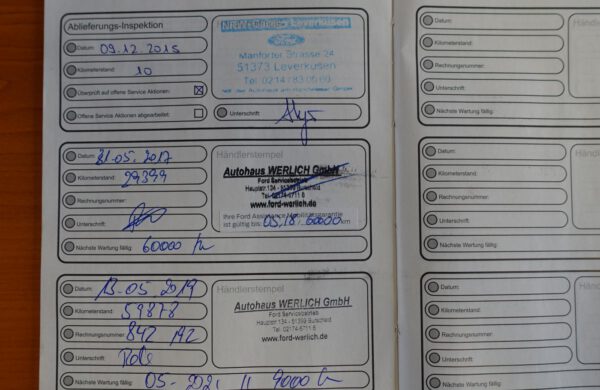 Ablieferungs-Inspektion
Datum: 09.12.2015
Kilometerstand: 10
Überprüft auf offene Service Aktionen:
Offene Service Aktionen abgearbeitet:
Leverkusen
Manforter Strasse 24
51373 Leverkusen
Unterschrift:
Datum: 31-05-2017
Kilometerstand: 29399
Rechnungsnummer:
Unterschrift:
Nächste Wartung fällig: 60000
Händlerstempel
Autohaus WERLICH GmbH
Ford Servicebetrieb
Hauptstr. 134 - 51399 Burscheid
Tel. 02174-6711 8
www.ford-werlich.de
Ihre Ford Assistance Mobilitätsgarantie
ist gültig bis: 05.18. 60000 km
Datum: 13-05-2019
Kilometerstand: 59878
Rechnungsnummer: 842
Unterschrift:
Nächste Wartung fällig: 05-2021
Händlerstempel
Autohaus WERLICH GmbH
Ford Servicebetrieb
Hauptstr. 134 - 51399 Burscheid
Tel. 02174-6711 8
www.ford-werlich.de
Datum:
Kilometerstand:
Rechnungsnummer:
Unterschrift:
Nächste Wartung fällig:
Datum:
Kilometerstand:
Rechnungsnummer:
Unterschrift:
Nächste Wartung fällig:
Datum:
Kilometerstand:
Rechnungsnummer:
Unterschrift:
Nächste Wartung fällig: